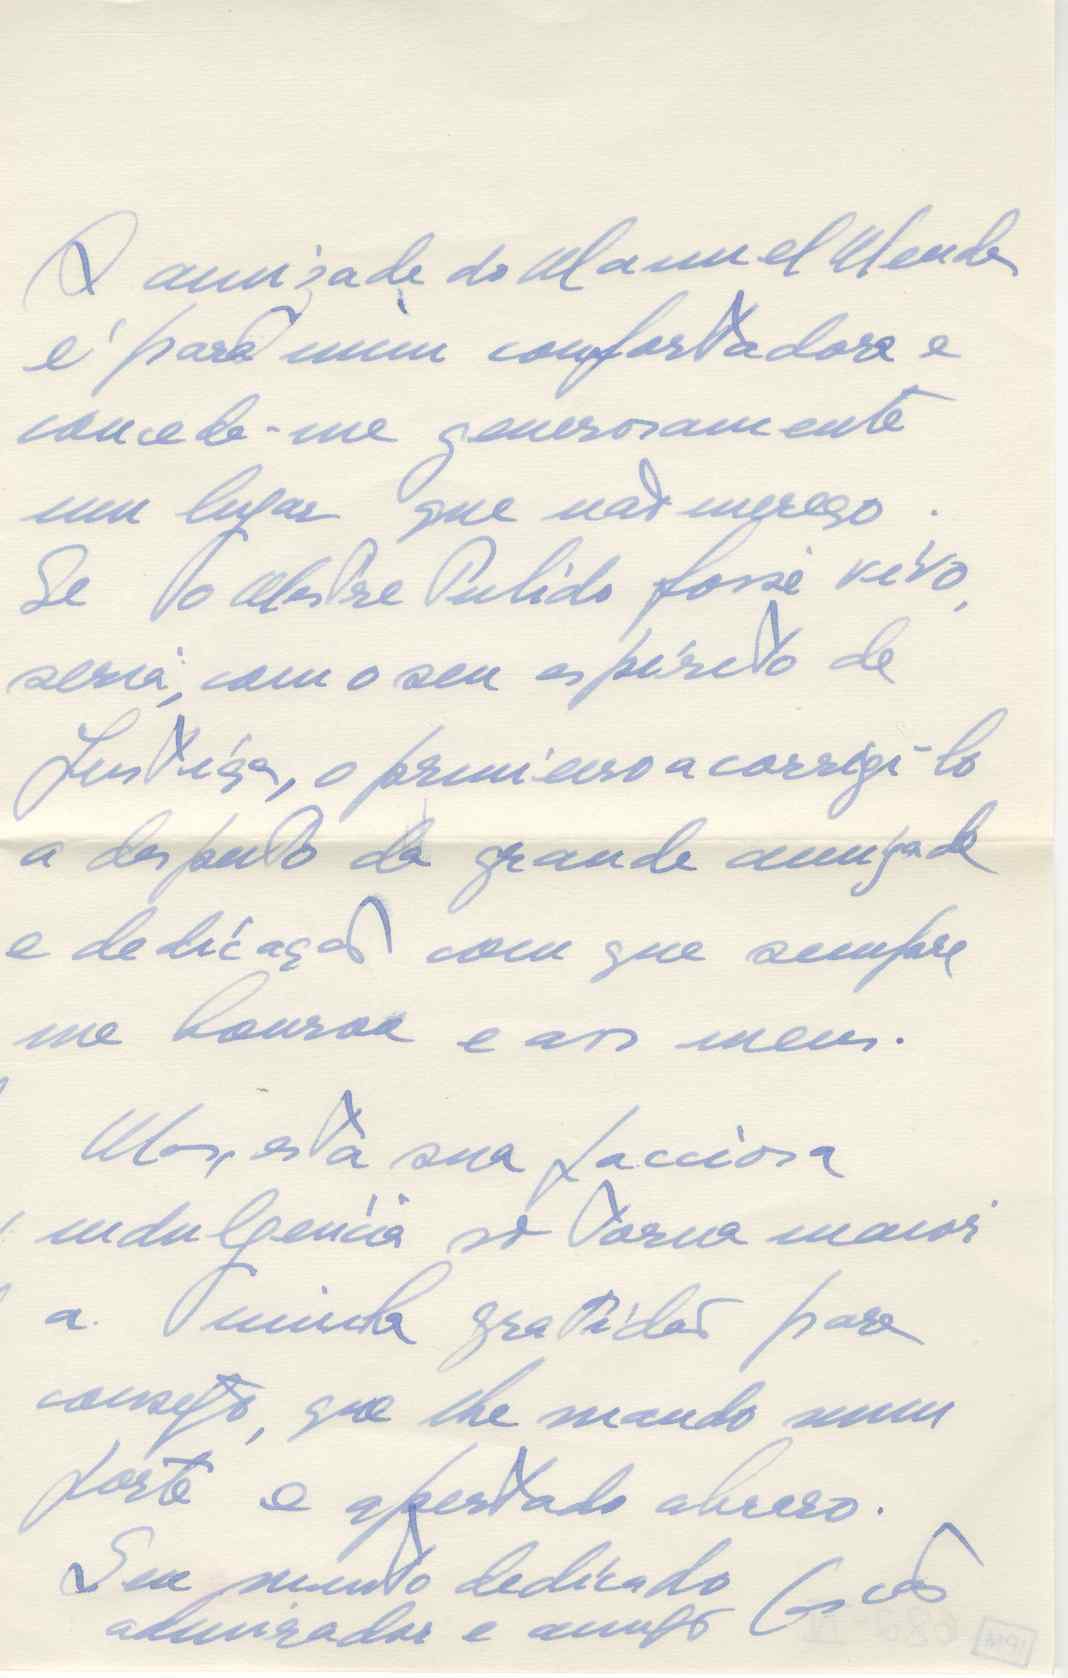 A amizade do Manuel Mendes
é para mim confortadora e
concede-me generosamente
um lugar que não mereço.
Se o Mestre Pulido fosse vivo,
seria, com o seu espírito de
Justiça, o primeiro a corrigi-lo
a despeito da grande amizade
e dedicação com que sempre
me honrou e aos meus.
Mas, esta sua facciosa
indulgência só torna maior
a minha gratidão para
consigo, que lhe mando num
forte e apertado abraço.
Seu muito dedicado
admirador e amigo